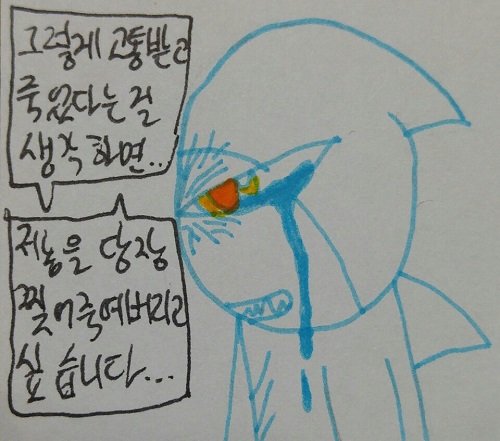 그렇게 고통받고
죽었다는 걸
생각하면..
저놈을 당장
찢어죽여버리고
싶습니다...